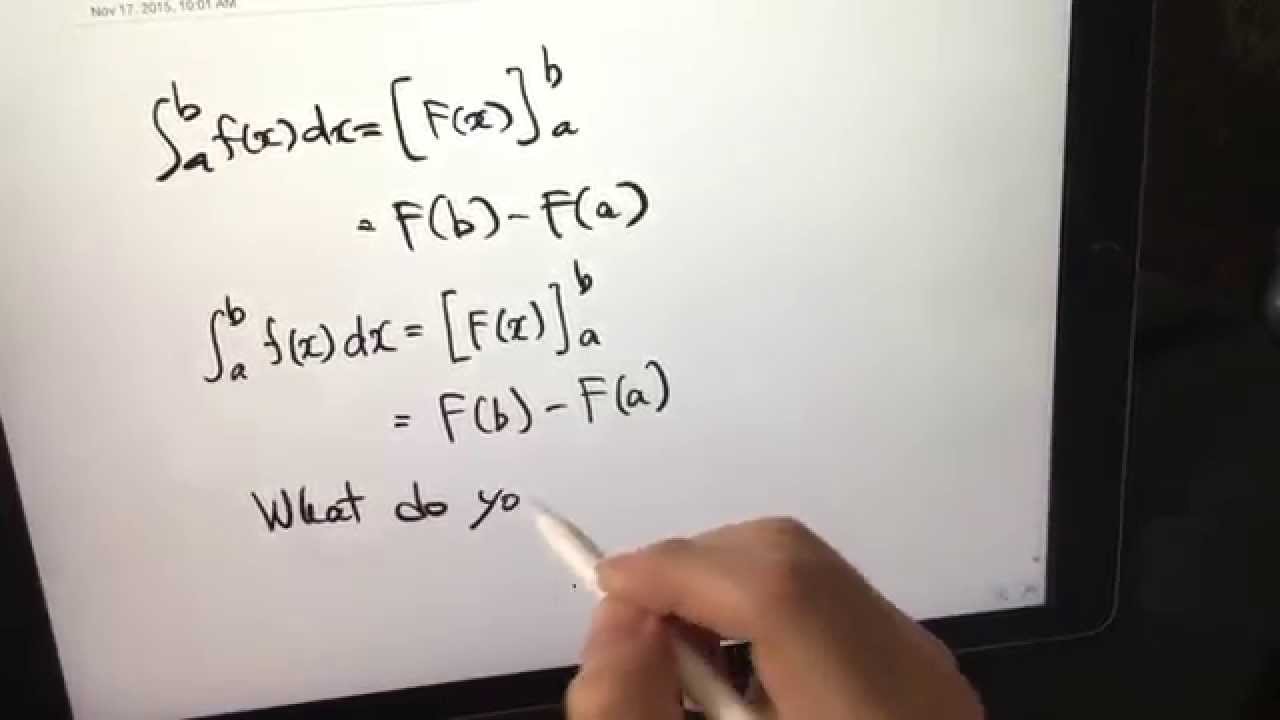 Nov 17, 2015, 10:01 AM
∫ₐᵇ f(x) dx = [F(x)]ₐᵇ
= F(b) - F(a)
∫ₐᵇ f(x) dx = [F(x)]ₐᵇ
= F(b) - F(a)
What do yo